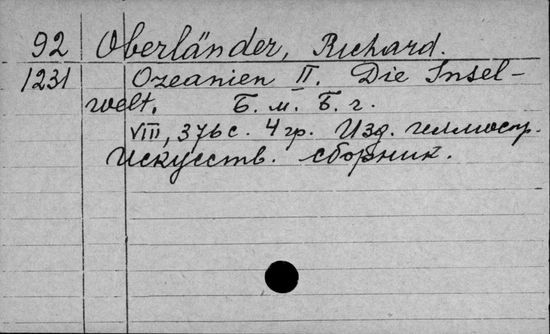 92 Oberländer, Richard.
1231 Ozeanien II. Die Insel-
welt. Б. м. Б. г.
VIII, 376 с. 4 гр. Изд. иллюстр.
Искусств. сборник.